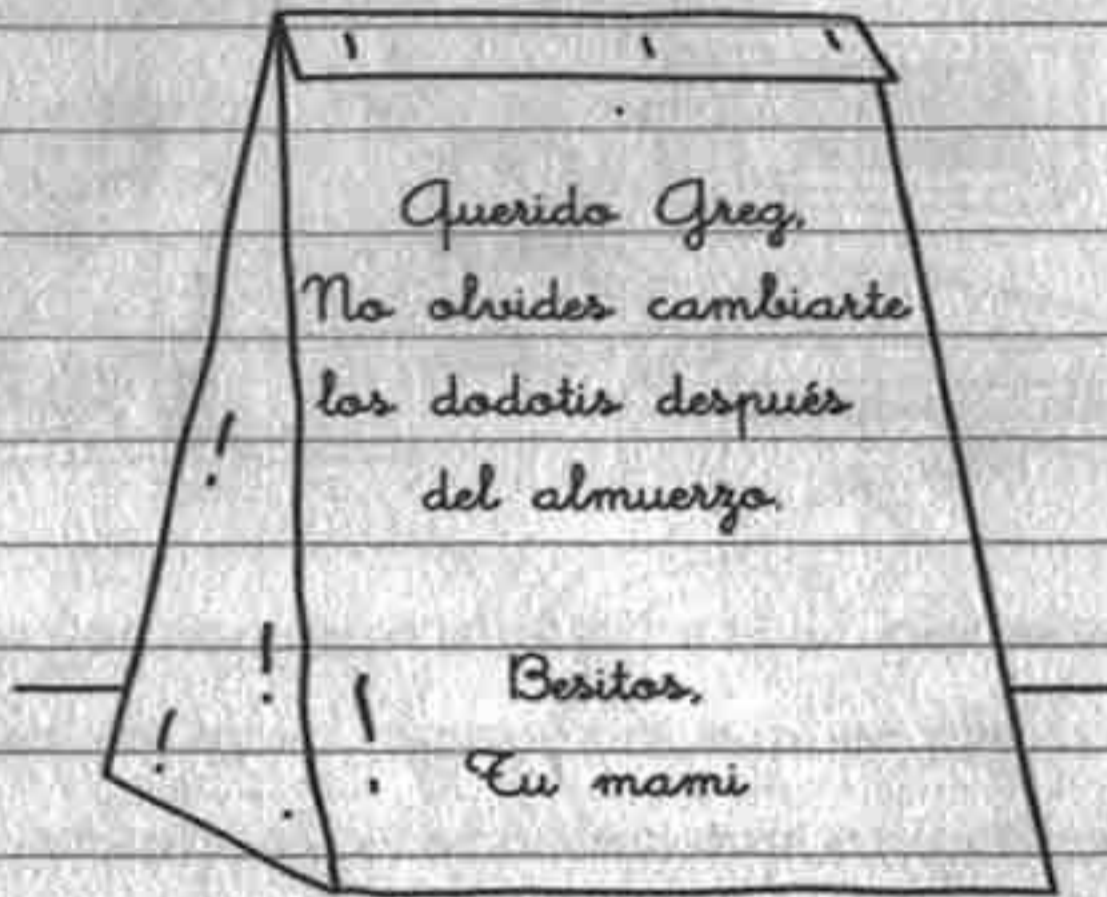 Querido Greg,
No olvides cambiarte
los dodotis después
del almuerzo.
Besitos,
Tu mami